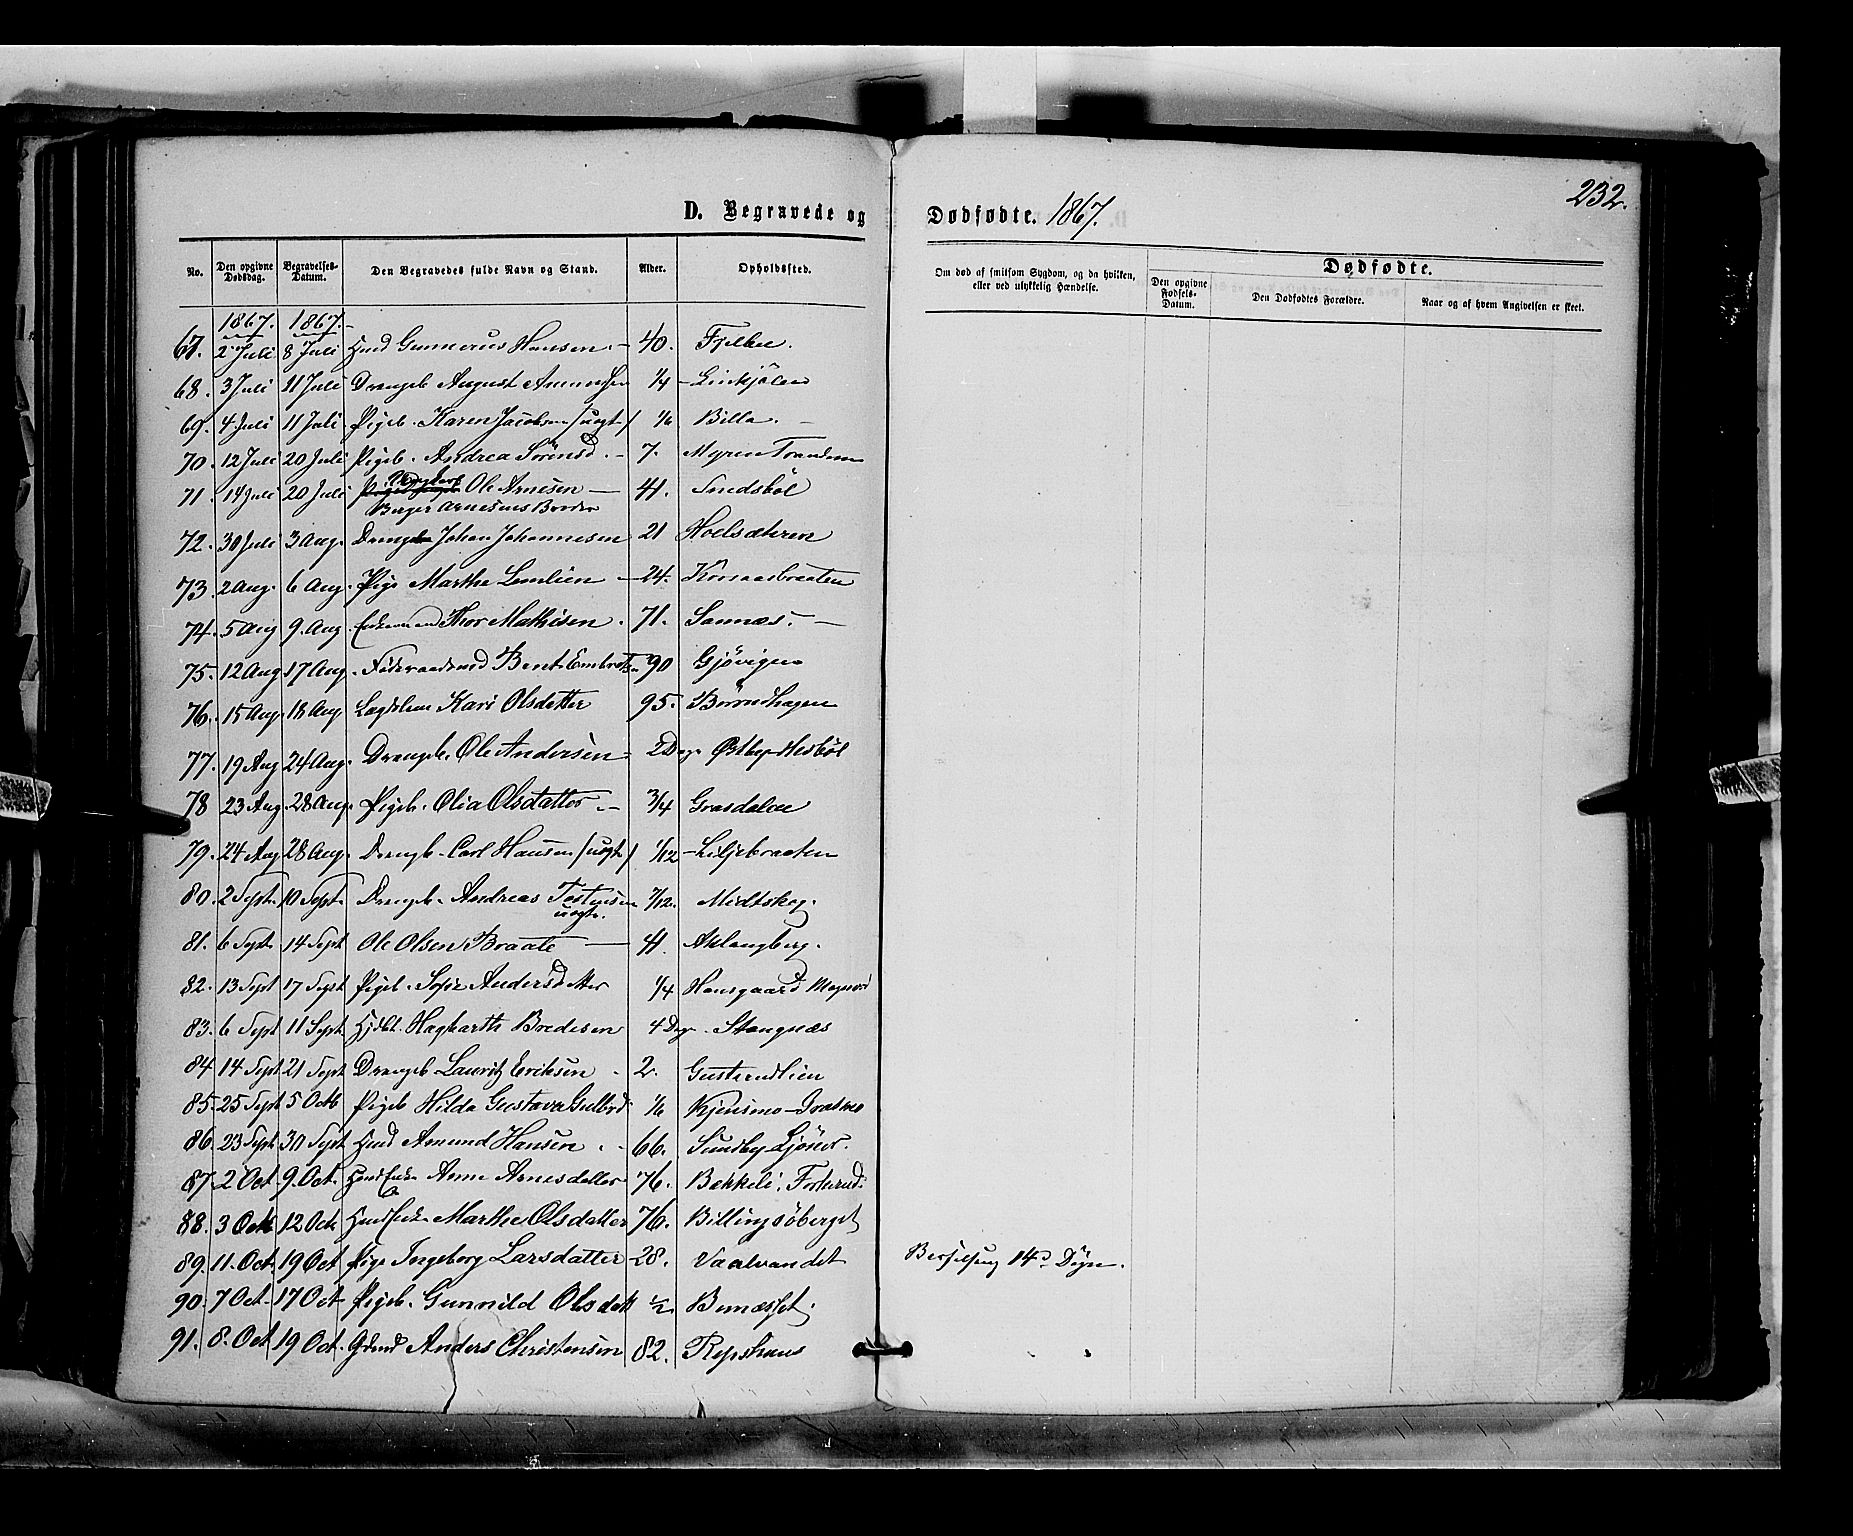 232.
D. Begravede og Dødfødte. 1867.
No. Den opgivne Dødsdag. Begravelses-Datum. Den Begravedes fulde Navn og Stand. Alder. Opholdssted. Om død af smitsom Sygdom, og da hvilken, eller ved ulykkelig Hændelse. Dødfødte. Den opgivne Fødsels-Datum. Den Dødfødtes Forældre. Naar og af hvem Angivelsen er skeet.
1867. 1867.
67. 2 Juli 8 Juli Hmd Gunnerus Hansen. 40.
68. 3 Juli 11 Juli Drengeb August 1/4
69. 4 Juli 11 Juli Pigeb. Karen Jacobsen /uægt/ 1/6 Billa.
70. 12 Juli 20 Juli Pigeb. Andrea Sörensd. 7. Myren
71. 14 Juli 20 Juli Ole Arnesen 41. Smedsböl
Birger Arnesens Broder
72. 30 Juli 3 Aug. Johan Johannesen 21 Hoelsæteren
73. 2 Aug. 6 Aug. Pige Marthe 24.
74. 5 Aug 9. Aug. Enkemand Thor Mathisen. 71. Sannæs.
75. 12 Aug 17 Aug. Föderaadsmd Bent Embretsen 90 Gjövigen
76. 15 Aug. 18 Aug Lægdslem Kari Olsdatter 95.
77. 19 Aug 24 Aug. Drengeb. Ole Andersen 2 Dage Østby Hesböl
78 23 Aug 28 Aug. Pigeb. Olia Olsdatter 3/4 Grasdalen
79. 24 Aug 28 Aug. Drengb. Carl Hansen /uægt/ 1/12 Liljebraaten
80. 2 Sept. 10 Sept. Drengeb. Andreas 7/12. Midtskog.
uægte.
81. 6 Sept 14 Sept Ole Olsen Braate 41. Aklangberg.
82. 13 Sept 17 Sept Pigeb. Sofie Andersdatter 1/4 Hansgaard Magnor
83. 6 Sept 11 Sept. Hjdbt. Hagbarth Bredesen 4 Dage Stangnæs
84 14 Sept 21 Sept Drengeb Lauritz Eriksen 2. Gustarudlien
85. 25 Sept 5 Octb Pigeb Hilda Gustava Gulbrd. 1/6 Kjensmo
86. 23 Sept. 30 Sept Hmd Amund Hansen. 66. Sundby
87. 2 Oct 9. Oct. Hmd Enke Anne Arnesdatter 76. Bekkeli.
88. 3 Octb 12 Octb Hmd Enke Marthe Olsdatter 76. Billingsöberget
89. 11. Oct. 19 Oct Pige Ingeborg Larsdatter 28. Vaalvandet Barselseng 14 d. Dögn.
90. 7 Oct. 17 Oct Pigeb. Gunnild Olsdatt 1/2
91. 8. Oct 19 Oct. Gdmd Anders Christensen 82. Repshuus